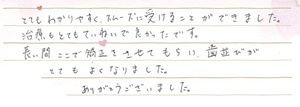 とてもわかりやすく、スムーズに受けることができました。
治療もとてもていねいで良かったです。
長い間ここで矯正をさせてもらい、歯並びが
とてもよくなりました。
ありがとうございました